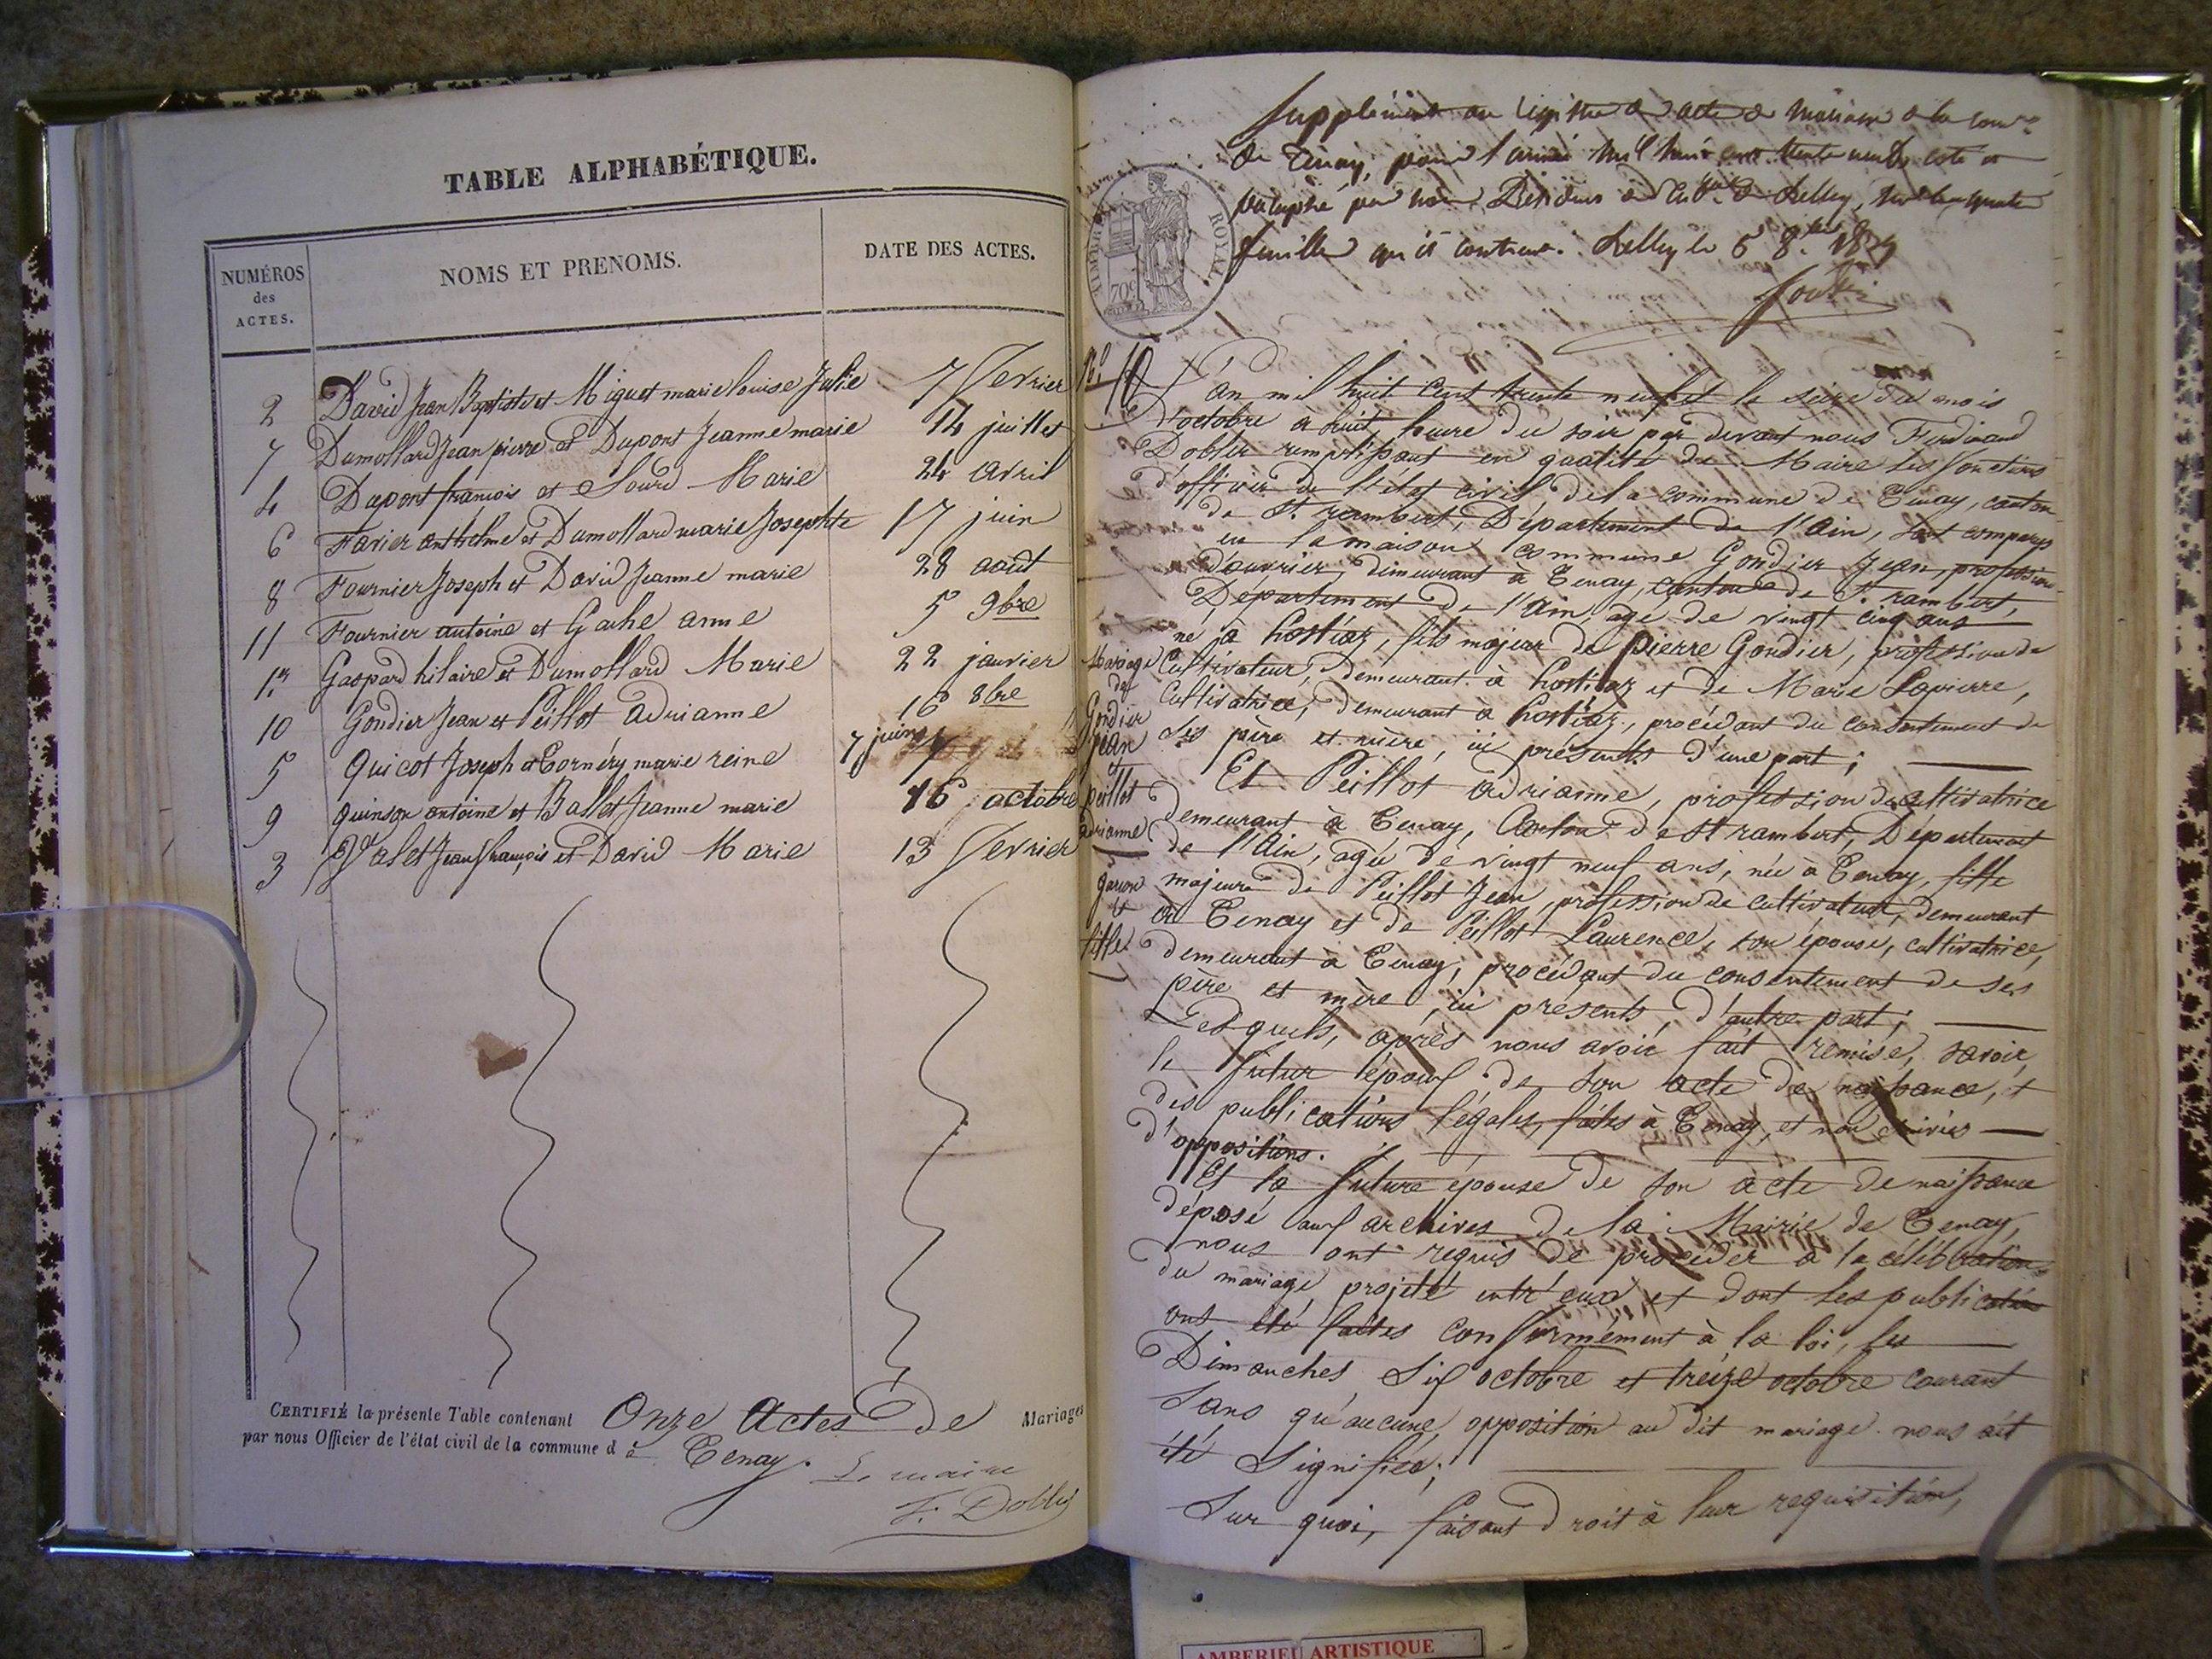 TABLE ALPHABÉTIQUE.
NUMÉROS
des
ACTES.
NOMS ET PRENOMS.
DATE DES ACTES.
2 David Jean Baptiste et Miguet marie louise Julie 7 fevrier
7 Dumollard Jean pierre et Dupont Jeanne marie 14 juillet
4 Dupont françois et Sourd Marie 24 avril
6 Favier anthelme et Dumollard marie Josephte 17 juin
8 Fournier Joseph et David Jeanne marie 28 août
11 Fournier antoine et Gache anne 5 9bre
1er Gaspard hilaire et Dumollard Marie 22 janvier
10 Gondier Jean et Peillot adrianne 16 8bre
5 Quicot Joseph et Cornéry marie reine 7 juin
9 quinson antoine et Ballet Jeanne marie 16 octobre
3 Jean françois et David Marie 13 fevrier
CERTIFIÉ la présente Table contenant Onze Actes De Mariages
par nous Officier de l'état civil de la commune d e Tenay.
Le maire
F. Dobler
Supplément au registre des actes de mariage de la
de Tenay, pour l'année mil huit cent trente neuf, coté et
paraphé par nous, Président de Belley, sur les quatre
feuilles qu'il contient. Belley le 5 8bre 1839
TIMBRE ROYAL
70c
No 10
Mariage
de
Gondier
jean
et
peillot
adrianne
garson
et
fille
L'an mil huit cent trente neuf et le seize du mois
d'octobre à huit heure du soir par devant nous Ferdinand
Dobler remplissant en qualité de Maire les fonctions
d'officier de l'état civil de la commune de Tenay, canton
de St. rambert, Département de l'ain, sont comparus
en la maison commune Gondier Jean, profession
d'ouvrier, demeurant à Tenay, canton de St. rambert,
Département de l'Ain, agé de vingt cinq ans
né à hostiaz, fils majeur de pierre Gondier, profession de
Cultivateur, demeurant à hostiaz et de Marie Lapierre,
Cultivatrice, demeurant à hostiaz, procédant du consentement de
ses père et mère, ici présents d'une part;
Et Peillot adrianne, profession de Cultivatrice
demeurant à Tenay, Canton de St rambert, Département
de l'Ain, agée de vingt neuf ans, née à Tenay, fille
majeure de Peillot Jean, profession de cultivateur, demeurant
à Tenay et de Peillot Laurence, son épouse, cultivatrice,
demeurant à Tenay, procédant du consentement de ses
père et mère, ici présents, d'autre part;
Lesquels, après nous avoir fait remise, savoir,
le futur époux de son acte de naissance, et
des publications légales, faites à Tenay, et non suivies
d'oppositions.
Et la future épouse de son acte de naissance
déposé aux archives de la Mairie de Tenay,
nous ont requis de procéder à la célébration
du mariage projeté entr'eux et dont les publications
ont été faites conformément à la loi, les
Dimanches, Six octobre et treize octobre courant
Sans qu'aucune opposition au dit mariage nous ait
été Signifiée;
Sur quoi, faisant droit à leur requisition,
AMBERIEU ARTISTIQUE